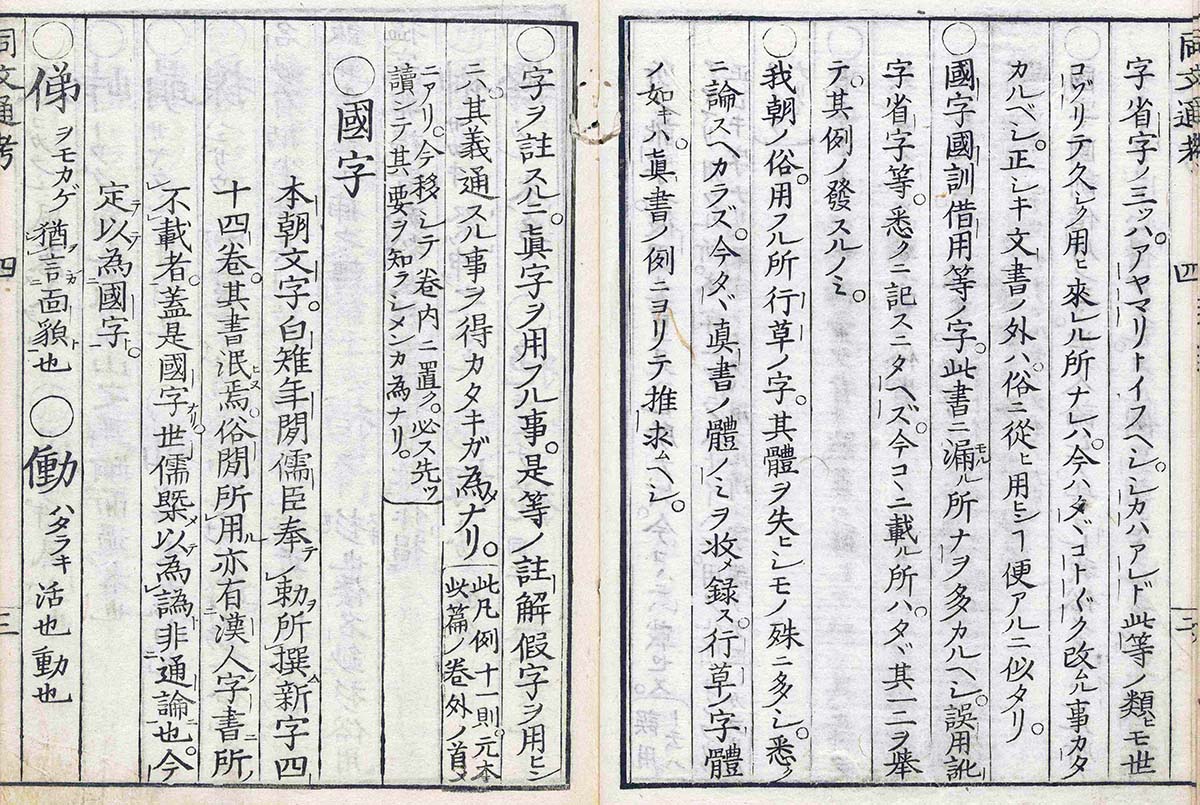 同文通考 四 三
字省字ノ三ツハ。アヤマリトイフヘシ。シカハアレド此等ノ類ヒモ世
コゾリテ久シク用ヒ來ル所ナレハ。今ハタヾコト〴〵ク改ムル事カタ
カルベシ。正シキ文書ノ外ハ。俗ニ從ヒ用ヒンヿ便アルニ似タリ。
○國字國訓借用等ノ字。此書ニ漏モルル所ナヲ多カルヘシ。誤用訛
字省字等。悉クニ記スニタヘズ。今コヽニ載ル所ハ。タヾ其一二ヲ擧
テ。其例ノ發スルノミ。
○我朝ノ俗。用フル所。行草ノ字。其體ヲ失ヒシモノ殊ニ多シ。悉ク
ニ論スヘカラズ。今タヾ眞書ノ體ノミヲ收メ録ス。行草ノ字體
ノ如キハ。眞書ノ例ニヨリテ推求ムヘシ。
○字ヲ註スルニ。眞字ヲ用フル事。是等ノ註解假字ヲ用ヒン
ニハ。其義通スル事ヲ得カタキガ為メナリ。此凡例十一則。元本此篇ノ卷外ノ首メ
ニアリ。今移シテ卷内ニ置ク。必ス先ツ讀ンテ其要ヲ知ラシメンカ為ナリ。
○國字
本朝文字。白雉年間儒臣奉テ勅ヲ所撰ム新字四
十四卷。其書泯ヒヌ焉。俗間所用ル亦有漢人字書ニ所ノ
不載者。蓋是國字ナリ。世儒槩メ以テ為譌ト非通論ニ也。今
定テ以テ為國字ト。
○俤 ヲモカゲ 猶ヲガ言面貌ト也 ○働 ハタラキ 活也動也
同文通考 四 三